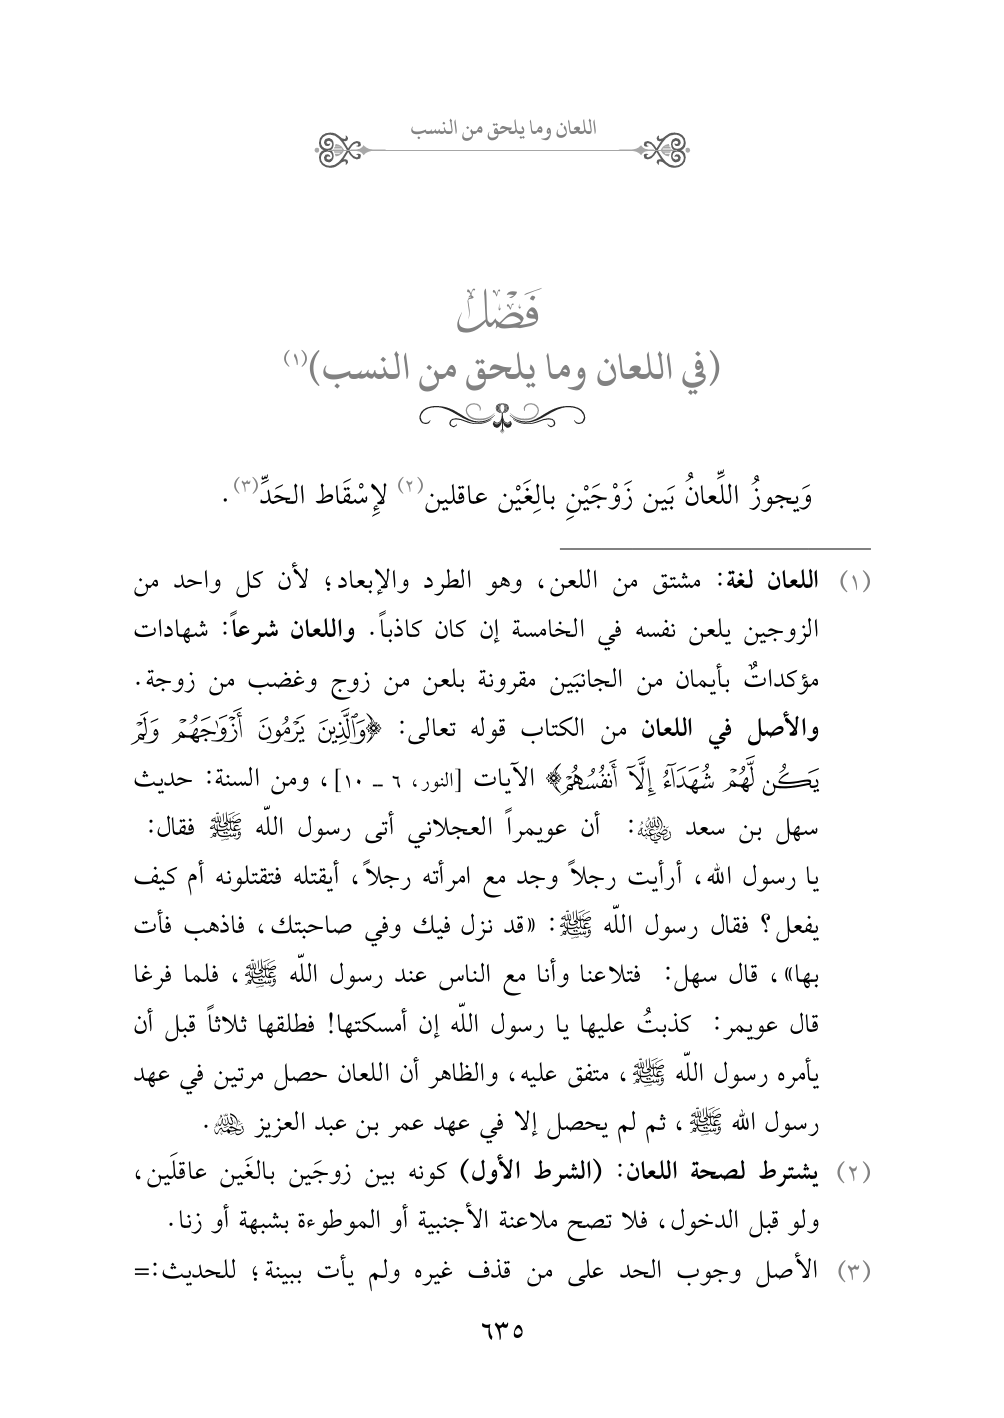 اللعان وما يلحق من النسب
فَصْل
(في اللعان وما يلحق من النسب)(١)
وَيجوزُ اللِّعانُ بَين زَوْجَيْنِ بالِغَيْن عاقلين(٢) لإِسْقَاط الحَدِّ(٣).
(١) اللعان لغة: مشتق من اللعن، وهو الطرد والإبعاد؛ لأن كل واحد من
الزوجين يلعن نفسه في الخامسة إن كان كاذباً. واللعان شرعاً: شهادات
مؤكداتٌ بأيمان من الجانبَين مقرونة بلعن من زوج وغضب من زوجة.
والأصل في اللعان من الكتاب قوله تعالى: ﴿وَٱلَّذِينَ يَرْمُونَ أَزْوَٰجَهُمْ وَلَمْ
يَكُن لَّهُمْ شُهَدَآءُ إِلَّآ أَنفُسُهُمْ﴾ الآيات [النور، ٦ ـ ١٠]، ومن السنة: حديث
سهل بن سعد رضي الله عنه: أن عويمراً العجلاني أتى رسول اللّه ﷺ فقال:
يا رسول الله، أرأيت رجلاً وجد مع امرأته رجلاً، أيقتله فتقتلونه أم كيف
يفعل؟ فقال رسول اللّه ﷺ: «قد نزل فيك وفي صاحبتك، فاذهب فأت
بها»، قال سهل: فتلاعنا وأنا مع الناس عند رسول اللّه ﷺ، فلما فرغا
قال عويمر: كذبتُ عليها يا رسول اللّه إن أمسكتها! فطلقها ثلاثاً قبل أن
يأمره رسول اللّه ﷺ، متفق عليه، والظاهر أن اللعان حصل مرتين في عهد
رسول الله ﷺ، ثم لم يحصل إلا في عهد عمر بن عبد العزيز رحمه الله.
(٢) يشترط لصحة اللعان: (الشرط الأول) كونه بين زوجَين بالغَين عاقلَين،
ولو قبل الدخول، فلا تصح ملاعنة الأجنبية أو الموطوءة بشبهة أو زنا.
(٣) الأصل وجوب الحد على من قذف غيره ولم يأت ببينة؛ للحديث:=
٦٣٥